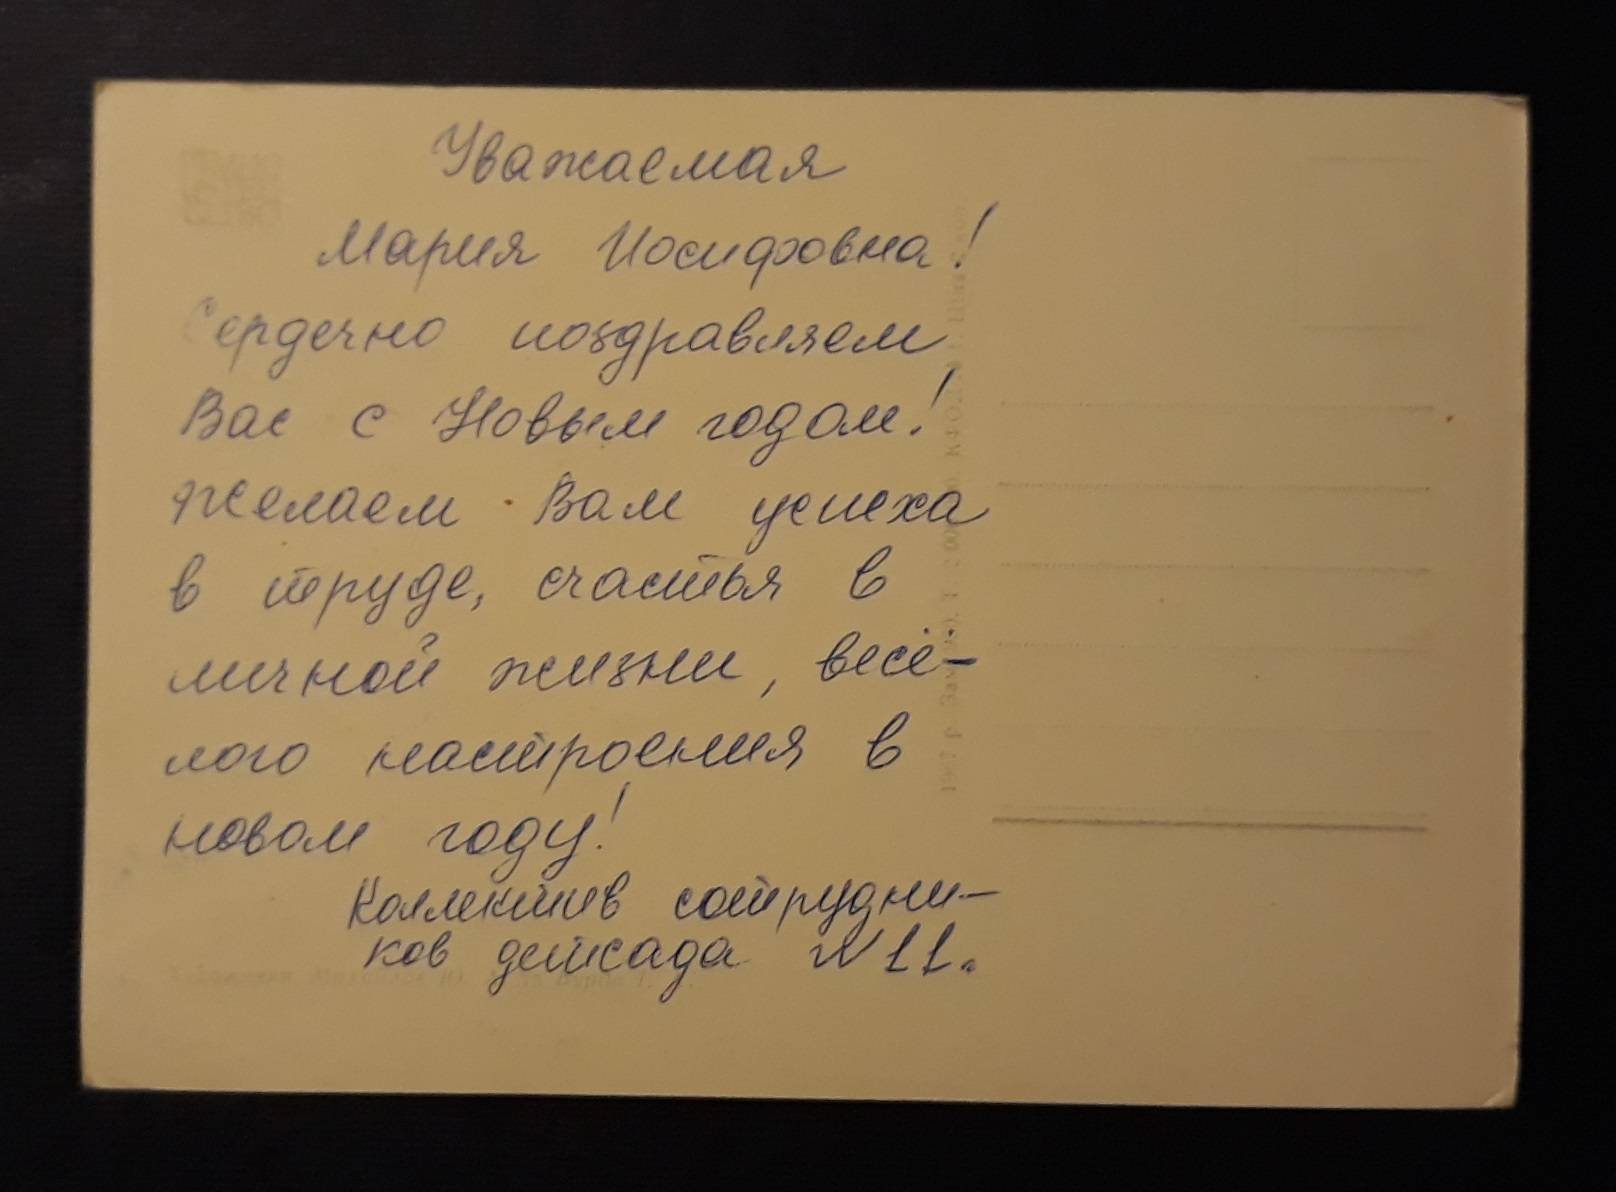 Уважаемая
Мария Иосифовна!
Сердечно поздравляем
Вас с Новым годом!
Желаем Вам успеха
в труде, счастья в
личной жизни, весё-
лого настроения в
новом году!
Коллектив сотрудни-
ков детсада N 11.